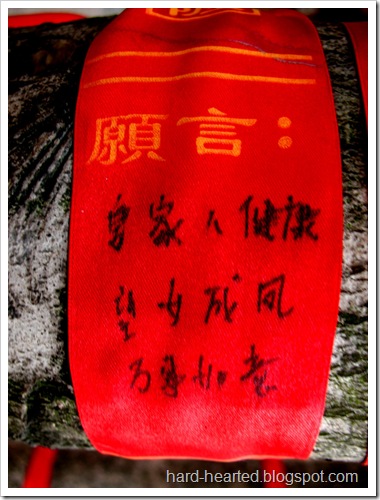 願言:
家人健康
望女成凤
万事如意
hard-hearted.blogspot.com